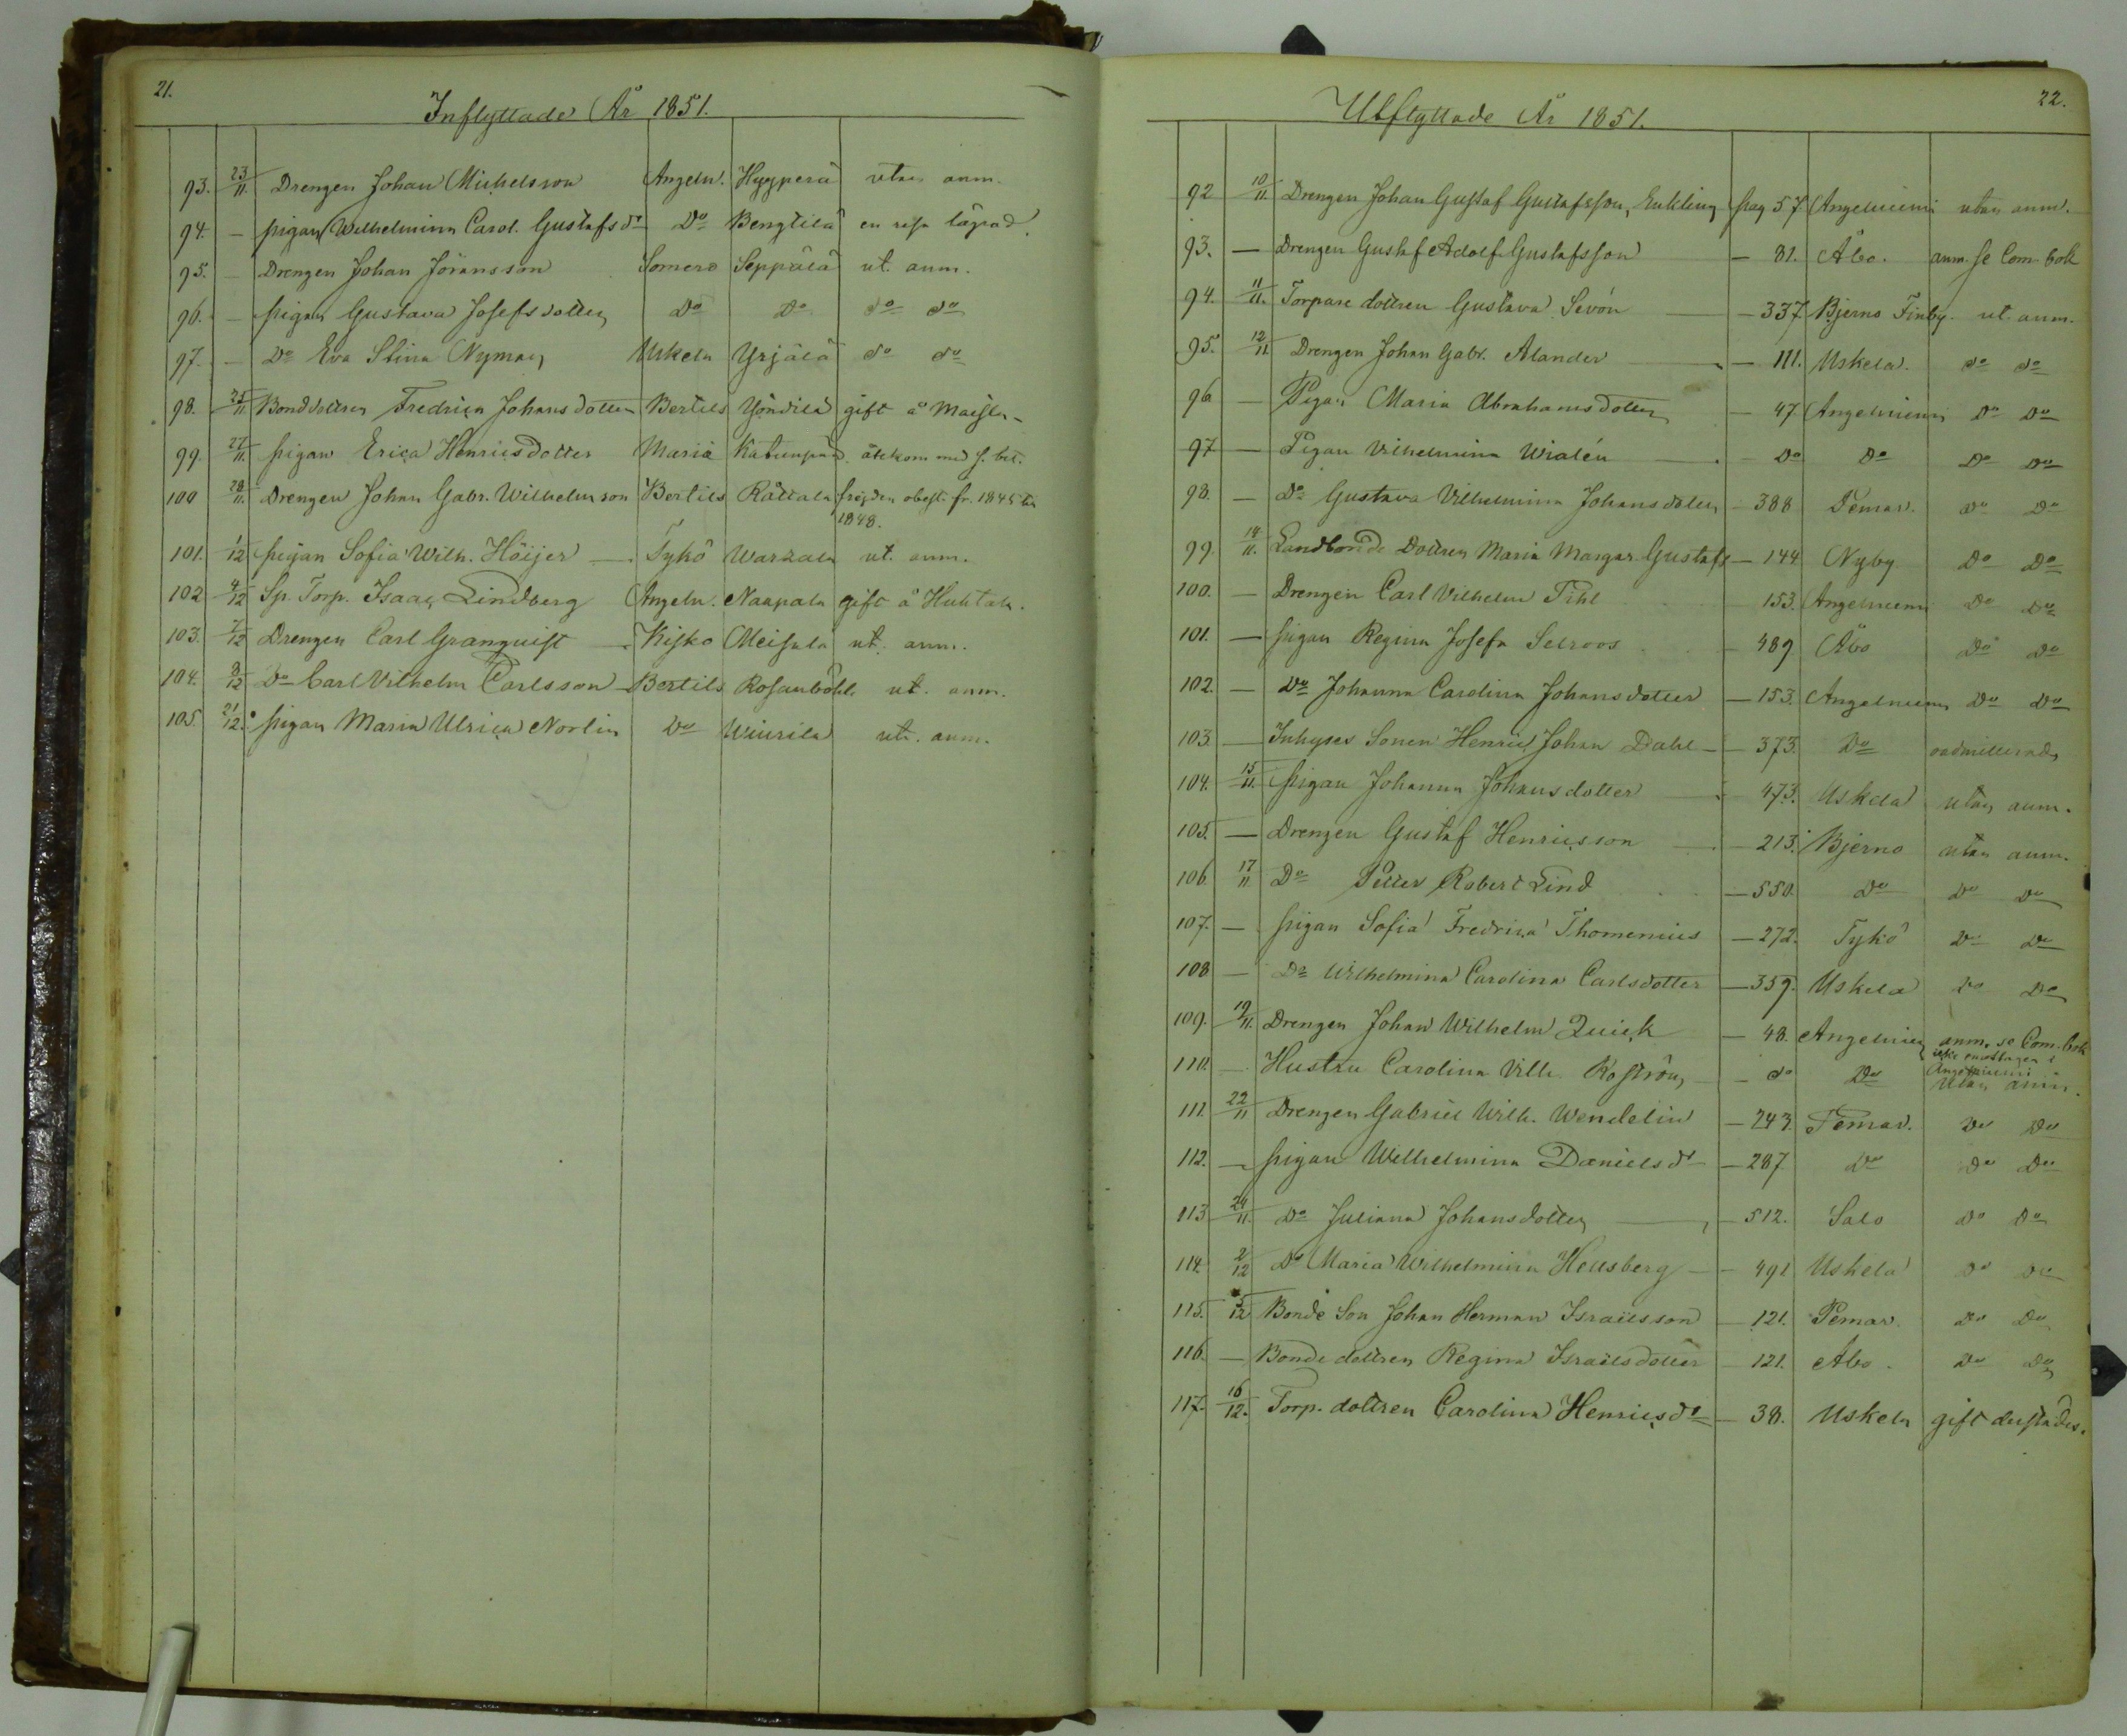 21.
Inflyttade År 1851.
93. 23/11 Drengen Johan Michelsson Angeln. Hyyperä utan anm.
94. — pigan Wilhelmina Carol. Gustafsdr Do Bengtilä en resa lägrad.
95. — Drengen Johan Jöransson Somero Seppälä ut. anm.
96. — pigan Gustava Josefsdotter Do Do do do
97. — Do Eva Stina Nyman Uskela Yrjälä do do
98. 25/11 Bonddottren Fredrica Johansdotter Bertils Yöndilä gift å
99. 27/11 pigan Erica Henricsdotter Maria återkom med s. bet.
100 28/11 Drengen Johan Gabr. Wilhelmson Bertils Rättala frejden obest. fr. 1845 till
1848.
101. 1/12 pigan Sofia Wilh. Höijer — Tykö Warzala ut. anm.
102 4/12 Sp. Torp. Isaac Lindberg Angeln. Naapala gift å Huhtala.
103. 7/12 Drengen Carl Granquist — Kisko Meisala ut. anm.
104. 8/12 Do Carl Vilhelm Carlsson — Bertils Rosanböhle ut. anm.
105 21/12. pigan Maria Ulrica Norlin Do Wiurila ut. anm.
22.
Utflyttade År 1851.
92 10/11. Drengen Johan Gustaf Gustafsson, Enkling pag 57. Angelniemi utan anm.
93. — Drengen Gustaf Adolf Gustafsson — 81. Åbo. anm. se Com. bok
94. 11/11. Torpare dottren Gustava Sevón — 337 Bjerno Finby. ut. anm.
95. 12/11 Drengen Johan Gabr. Alander — 111. Uskela. do do
96 — Pigan Maria Abrahamsdotter — 47 Angelniemi Do Do
97 — Pigan Vilhelmina Wialén — Do Do Do Do
98. — Do Gustava Vilhelmina Johansdotter — 388 Pemar. Do Do
99. 14/11. Landbonde Dottren Maria Margar. Gustafs — 144 Nyby Do Do
100. — Drengen Carl Vilhelm Tihl — 153. Angelniemi Do Do
101. — pigan Regina Josefa Selroos — 489 Åbo Do Do
102. — Do Johanna Carolina Johansdotter — 153. Angelniemi Do Do
103 — Inhyses Sonen Henric Johan Dahl — 373. Do oadmitterad
104. 15/11. pigan Johanna Johansdotter — 473. Uskela utan anm.
105. — Drengen Gustaf Henricsson — 213. Bjerno utan anm.
106. 17/11 Do Petter Robert Lind — 550. Do Do Do
107. — pigan Sofia Fredrica Thomenius — 272. Tykö Do Do
108 — Do Wilhelmina Carolina Carlsdotter — 359. Uskela Do Do
109. 19/11. Drengen Johan Wilhelm Quick — 48. Angelniemi anm. se Com. bok
icke emottagen i
Angelniemi
110. — Hustru Carolina Vilh. Roström — do Do utan anm.
111. 22/11 Drengen Gabriel Wilh. Wendelin — 243. Pemar. Do Do
112. — pigan Wilhelmina Danielsdr — 287 Do Do Do
113 24/11. Do Juliana Johansdotter — 512. Salo Do Do
114. 2/12 Do Maria Wilhelmina Hellsberg — 491 Uskela Do Do
115. 5/12 Bonde Son Johan Herman Israelsson — 121. Pemar. Do Do
116. — Bonde dottren Regina Israelsdotter — 121. Åbo. Do Do
117. 16/12. Torp. dottren Carolina Henricsdr — 38. Uskela gift derstädes.